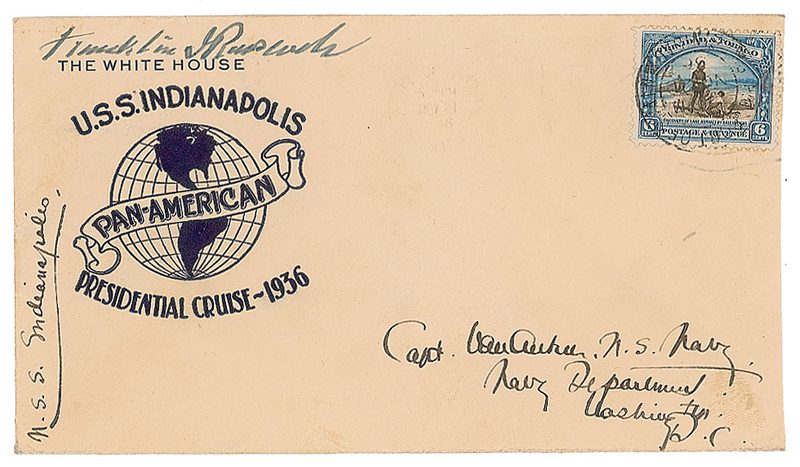 Franklin D Roosevelt
THE WHITE HOUSE
U.S.S. INDIANAPOLIS
PAN-AMERICAN
PRESIDENTIAL CRUISE~1936
U.S.S. Indianapolis.
TRINIDAD & TOBAGO
6 CENTS
POSTAGE & REVENUE
6 CENTS
Capt. VanAuken. U.S. Navy.
Navy Department
Washington.
D.C.